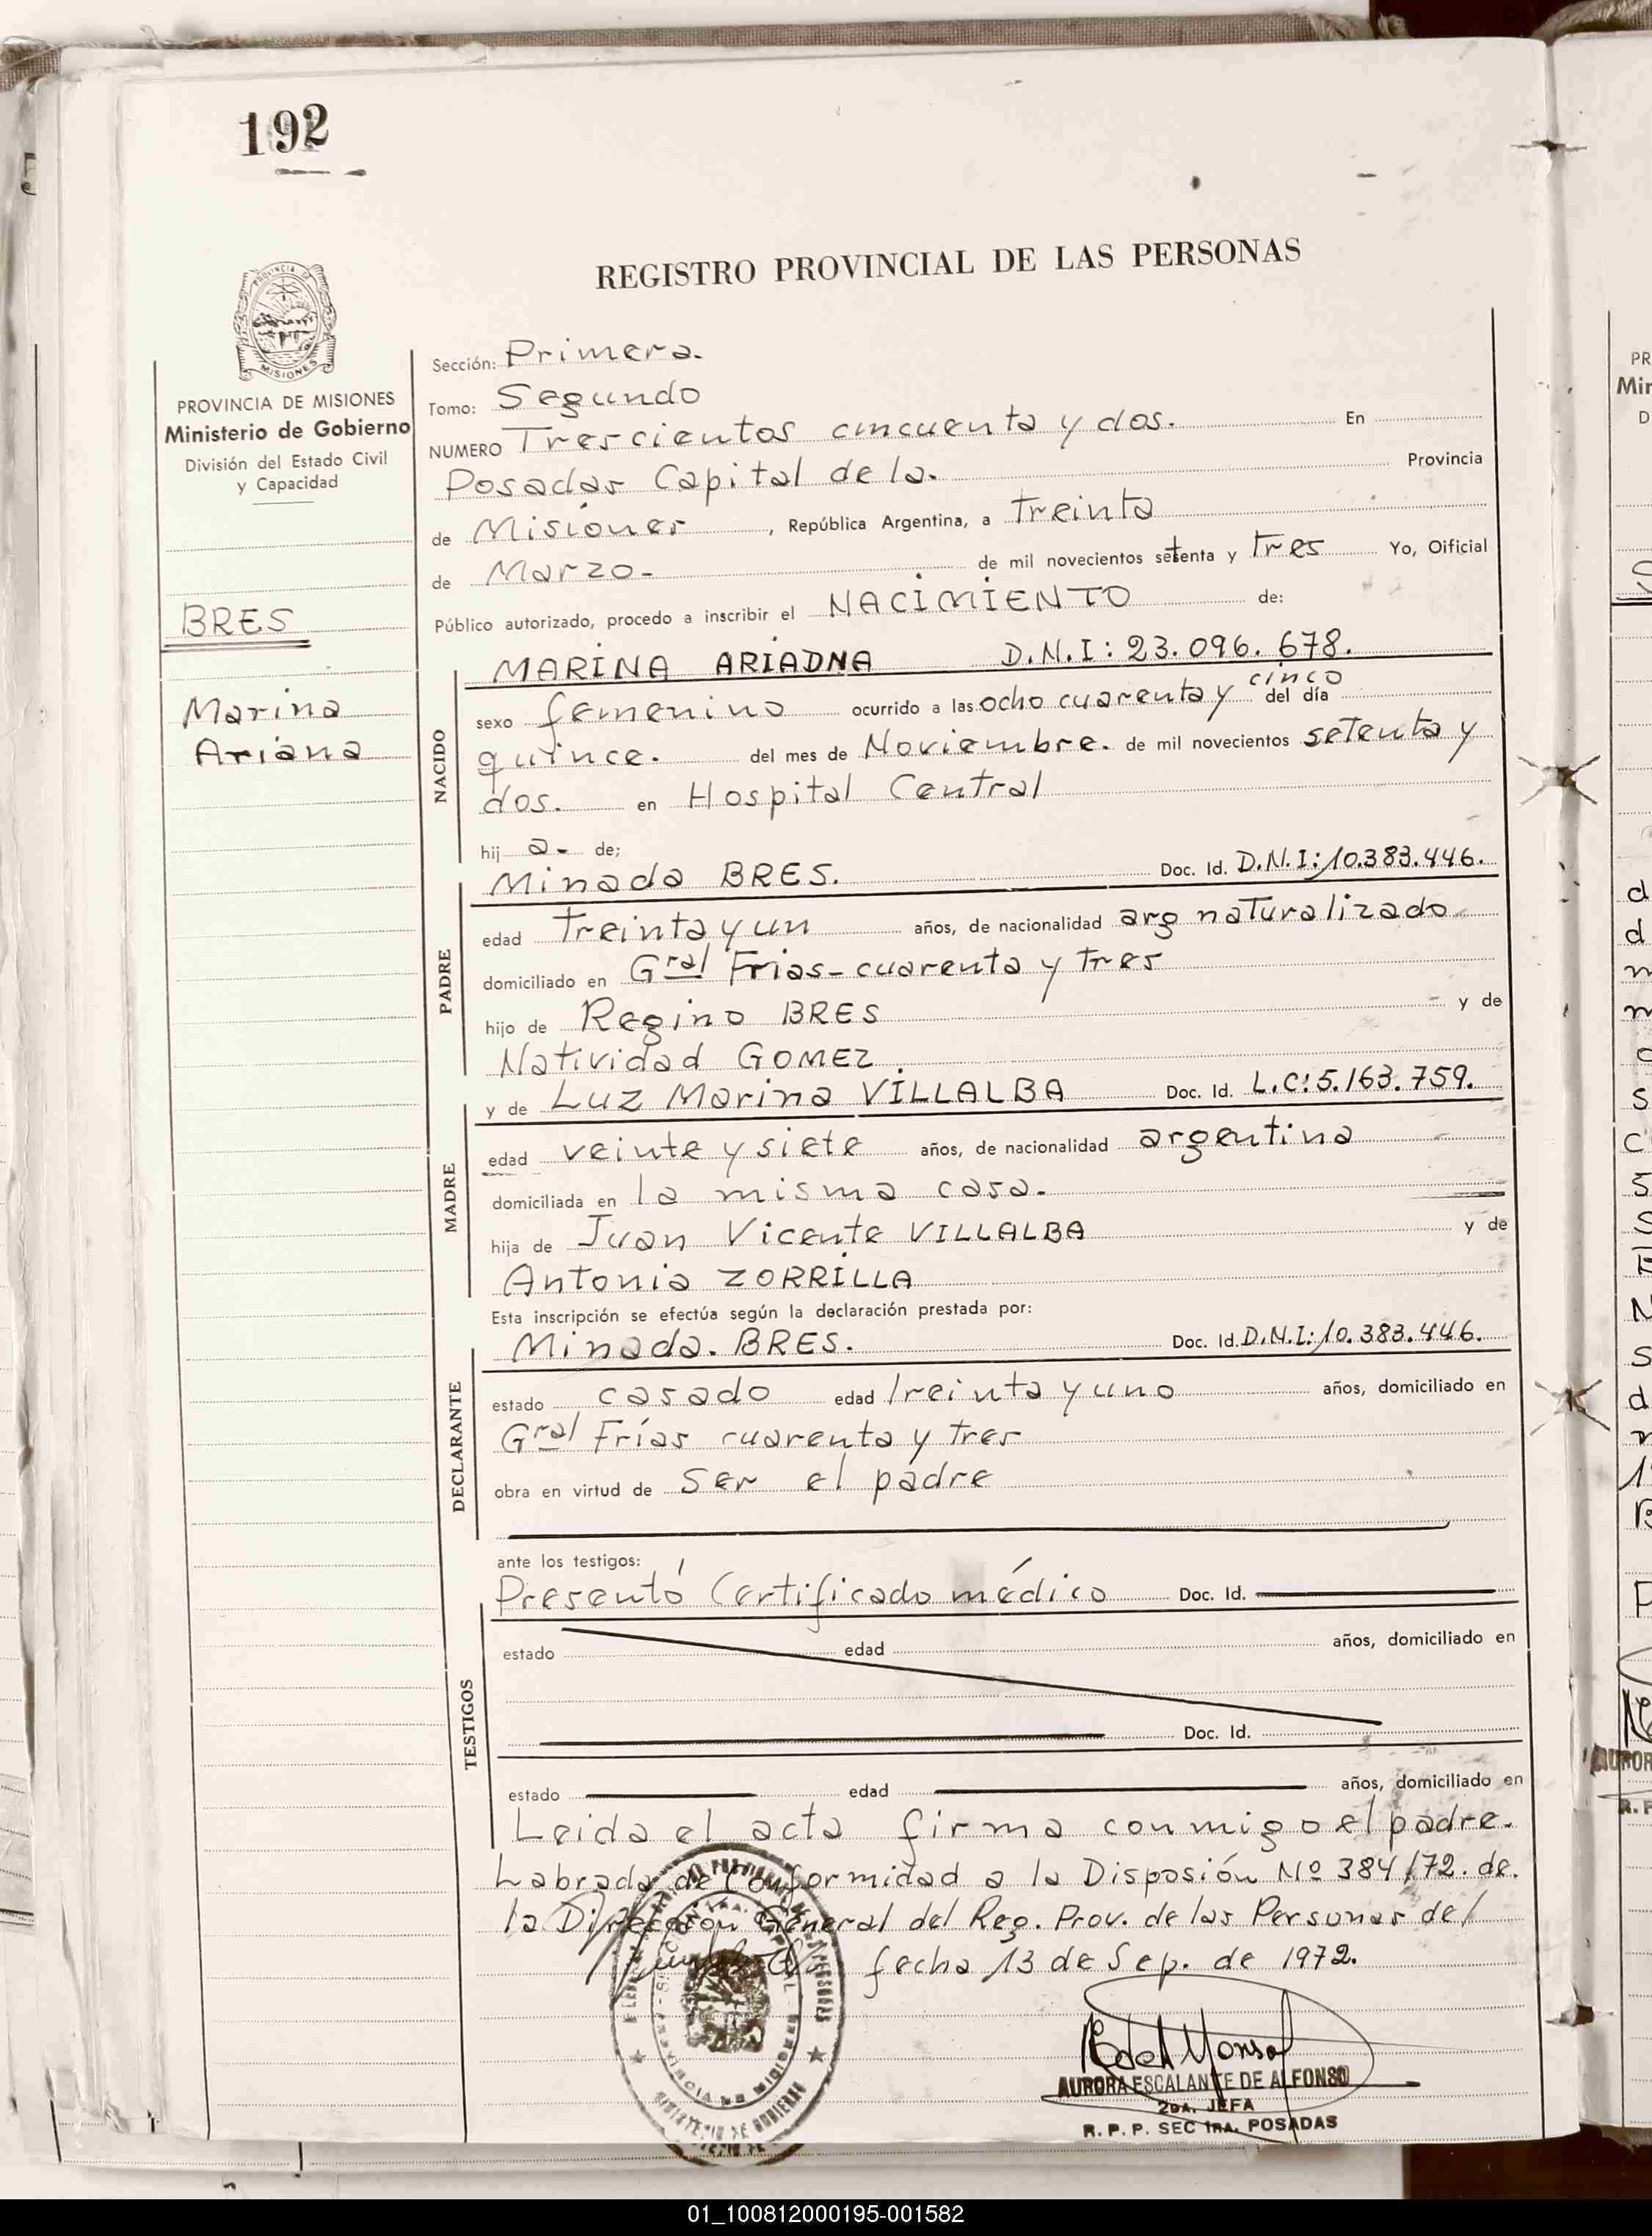 192
REGISTRO PROVINCIAL DE LAS PERSONAS
MISIONES
PROVINCIA DE MISIONES
Ministerio de Gobierno
División del Estado Civil
y Capacidad
BRES
Marina
Ariana
Sección: Primera.
Tomo: Segundo
NUMERO Trescientos cincuenta y dos. En
Posadas Capital de la. Provincia
de Misiones, República Argentina, a treinta
de Marzo- de mil novecientos setenta y tres Yo, Oificial
Público autorizado, procedo a inscribir el NACIMIENTO de:
MARINA ARIADNA D.N.I: 23.096.678.
NACIDO
sexo femenino ocurrido a las ocho cuarenta y cinco del día
quince. del mes de Noviembre. de mil novecientos setenta y
dos. en Hospital Central
hij a- de;
Minado BRES. Doc. Id. D.N.I: 10.383.446.
PADRE
edad treinta y un años, de nacionalidad arg naturalizado
domiciliado en Gral Frias-cuarenta y tres
hijo de Regino BRES y de
Natividad GOMEZ
y de Luz Marina VILLALBA Doc. Id. L.C: 5.163.759.
MADRE
edad veinte y siete años, de nacionalidad argentina
domiciliada en la misma casa.
hija de Juan Vicente VILLALBA y de
Antonia ZORRILLA
Esta inscripción se efectúa según la declaración prestada por:
Minada. BRES. Doc. Id. D.N.I: 10.383.446.
DECLARANTE
estado casado edad treinta y uno años, domiciliado en
Gral Frías cuarenta y tres
obra en virtud de ser el padre
ante los testigos:
Presentó Certificado médico Doc. Id.
TESTIGOS
estado edad años, domiciliado en
Doc. Id.
estado edad años, domiciliado en
Leida el acta firma conmigo el padre.
Labrada de Conformidad a la Disposión Nº 384/72. de
la Dirección General del Reg. Prov. de las Personas del
fecha 13 de Sep. de 1972.
AURORA ESCALANTE DE ALFONSO
2DA. JEFA
R. P. P. SEC 1RA. POSADAS
01_100812000195-001582